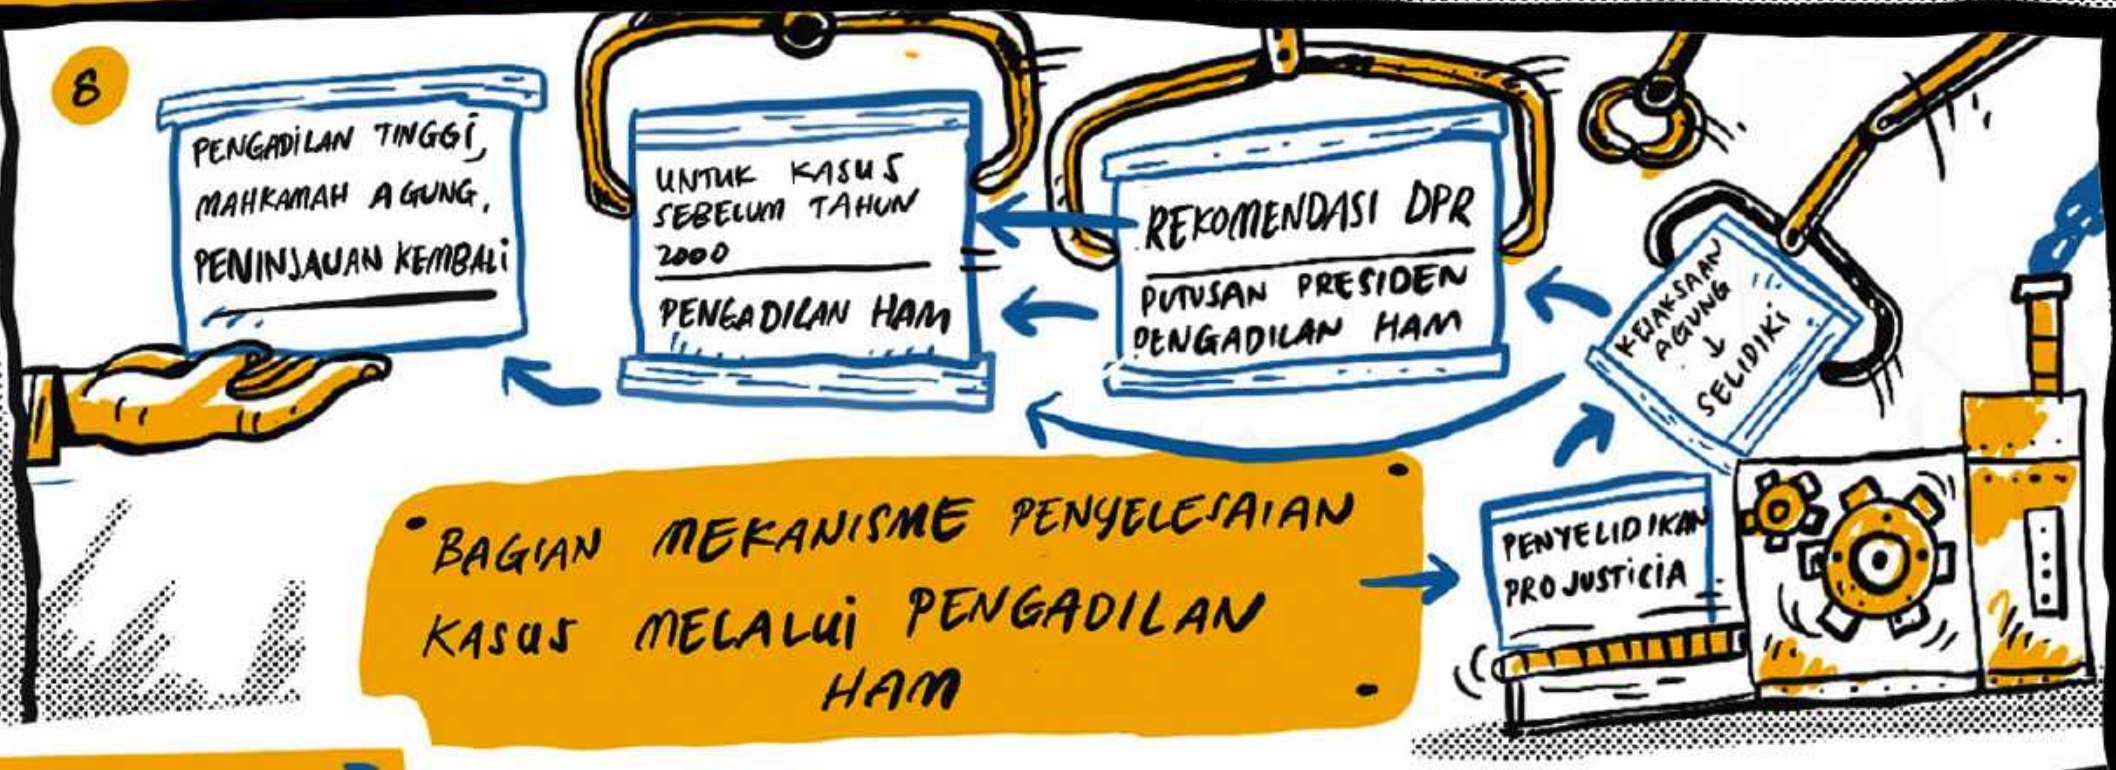 8
PENGADILAN TINGGI,
MAHKAMAH AGUNG,
PENINJAUAN KEMBALI
UNTUK KASUS
SEBELUM TAHUN
2000
PENGADILAN HAM
REKOMENDASI DPR
PUTUSAN PRESIDEN
PENGADILAN HAM
KEJAKSAAN
AGUNG
↓
SELIDIKI
BAGIAN MEKANISME PENYELESAIAN
KASUS MELALUI PENGADILAN
HAM
PENYELIDIKAN
PRO JUSTICIA